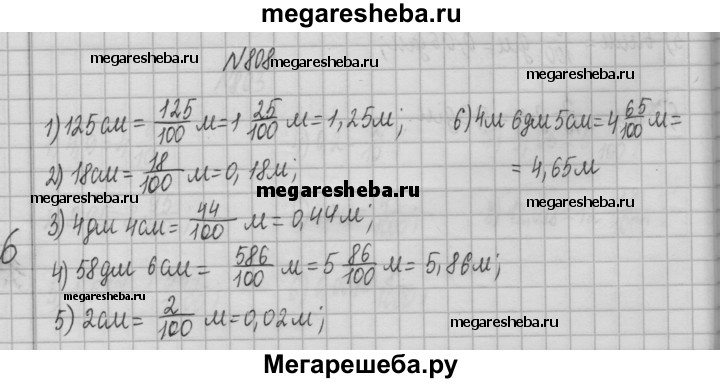 megaresheba.ru
№808
megaresheba.ru
megaresheba.ru
megaresheba.ru
1) 125см = 125/100 м = 1 25/100 м = 1,25м;
6) 4м 6дм 5см = 4 65/100 м =
= 4,65м
2) 18см = 18/100 м = 0,18м;
megaresheba.ru
megaresheba.ru
megaresheba.ru
3) 4дм 4см = 44/100 м = 0,44м;
6
4) 58дм 6см = 586/100 м = 5 86/100 м = 5,86м;
megaresheba.ru
5) 2см = 2/100 м = 0,02м;
megaresheba.ru
Мегарешеба.ру